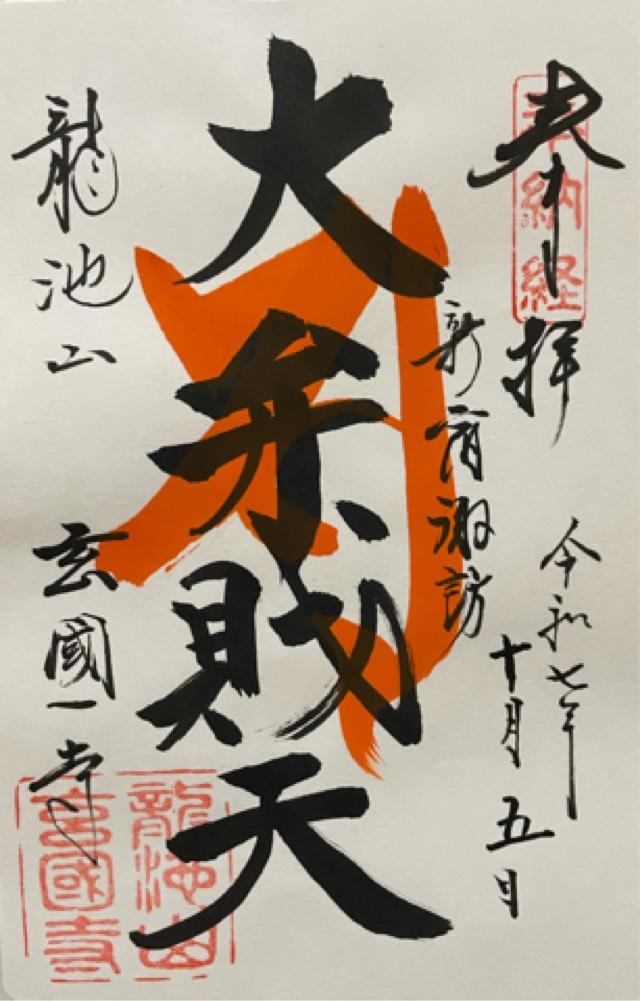 奉拝
奉納経
令和七年
十月五日
新宿諏訪
大弁財天
龍池山
玄國寺
龍池山
玄國寺